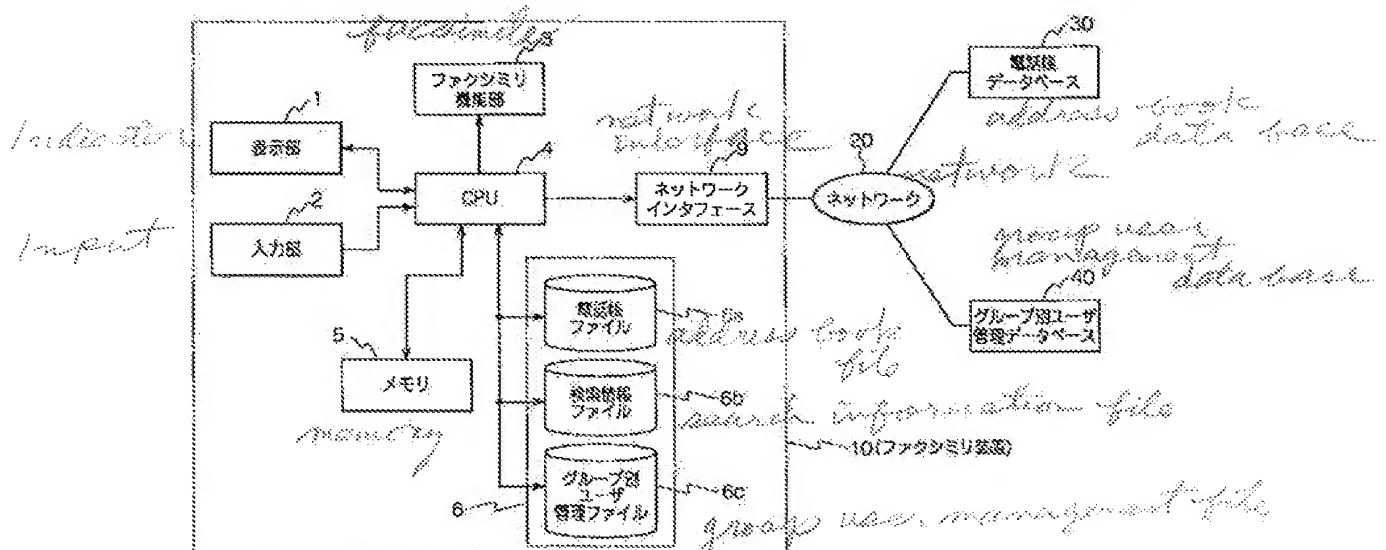 facsimile
3
ファクシミリ
機能部
1
Indicator
表示部
4
CPU
2
Input
入力部
network
interface
9
ネットワーク
インタフェース
20
network
ネットワーク
30
電話帳
データベース
address book
data base
group user
management
data base
40
グループ別ユーザ
管理データベース
5
メモリ
memory
電話帳
ファイル
6a
address book
file
検索情報
ファイル
6b
search information file
10(ファクシミリ装置)
グループ別
ユーザ
管理ファイル
6c
6
group user management file